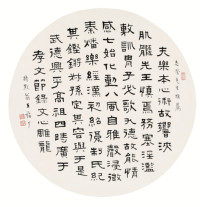 夫樂本心術故響浹
肌髓先王慎焉務塞淫濫
敷訓胄子必歌九德故能情
感七始化動八風自雅聲浸微
秦燔樂經漢初紹復制氏紀
其鏗鏘叔孫定其容典
武德興乎高祖四時廣于
孝文節錄文心雕龍